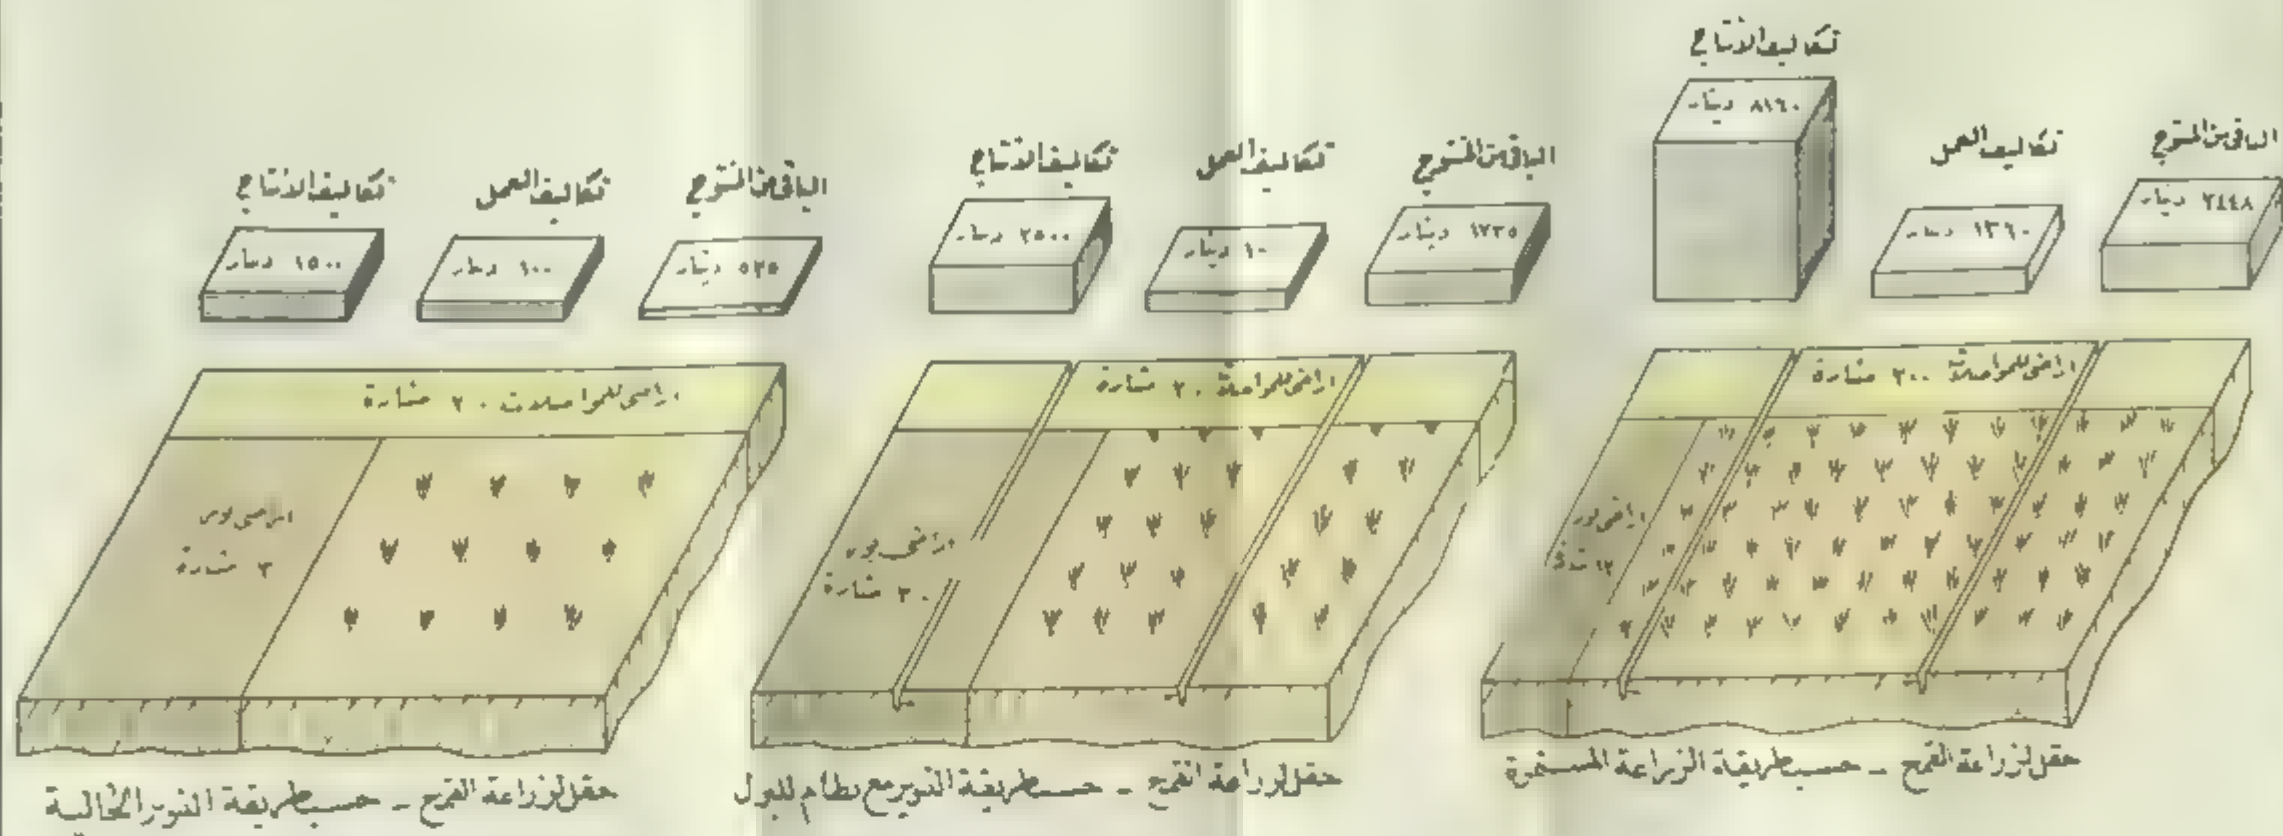 تكاليف الانتاج
٨١٦٠ دينار
تكاليف العمل
١٣٦٠ دينار
الباقي من المنتوج
٢٤٤٨ دينار
اراضي للمواصلات ٢٠٠ مشارة
اراضي بور
حقل لزراعة القمح - حسب طريقة الزراعة المستمرة
تكاليف الانتاج
٢٥٠٠ دينار
تكاليف العمل
دينار
الباقي من المنتوج
١٧٣٥ دينار
اراضي للمواصلات ٢٠ مشارة
اراضي بور
٣٠ مشارة
حقل لزراعة القمح - حسب طريقة التوير مع نظام للبزل
تكاليف الانتاج
١٥٠٠ دينار
تكاليف العمل
٦٠٠ دينار
الباقي من المنتوج
٥٢٥ دينار
اراضي للمواصلات ٢٠ مشارة
اراضي بور
مشارة
حقل لزراعة القمح - حسب طريقة التوير الحالية